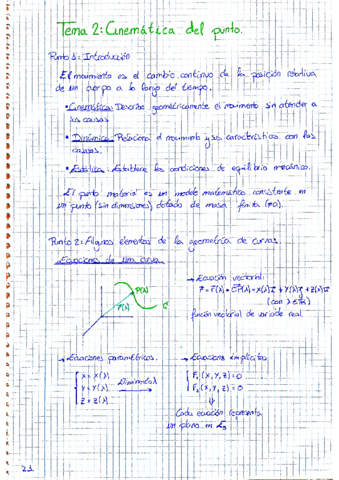 Tema 2: Cinemática del punto.
Punto 1: Introducción
El movimiento es el cambio continuo de la posición relativa
de un cuerpo a lo largo del tiempo.
• Cinemática: Describe geométricamente el movimiento sin atender a
las causas
• Dinámica: Relaciona el movimiento y sus características con las
causas.
• Estática: Establece las condiciones de equilibrio mecánico.
El punto material es un modelo matemático consistente en
un punto (sin dimensiones) dotado de masa finita (≠0).
Punto 2: Algunos elementos de la geometría de curvas.
Ecuaciones de una curva
→ Ecuación vectorial:
r⃗ = r⃗(λ) = O⃗P(λ) = X(λ)i⃗ + Y(λ)j⃗ + Z(λ)k⃗
(con λ∈ℝ)
función vectorial de variable real.
P(λ)
r⃗(λ)
C
→ Ecuaciones paramétricas.
X = X(λ)
Y = Y(λ)
Z = Z(λ)
Eliminando λ
→ Ecuaciones implícitas
F₁(X, Y, Z) = 0
F₂(X, Y, Z) = 0
Cada ecuación representa
un plano en
2.1